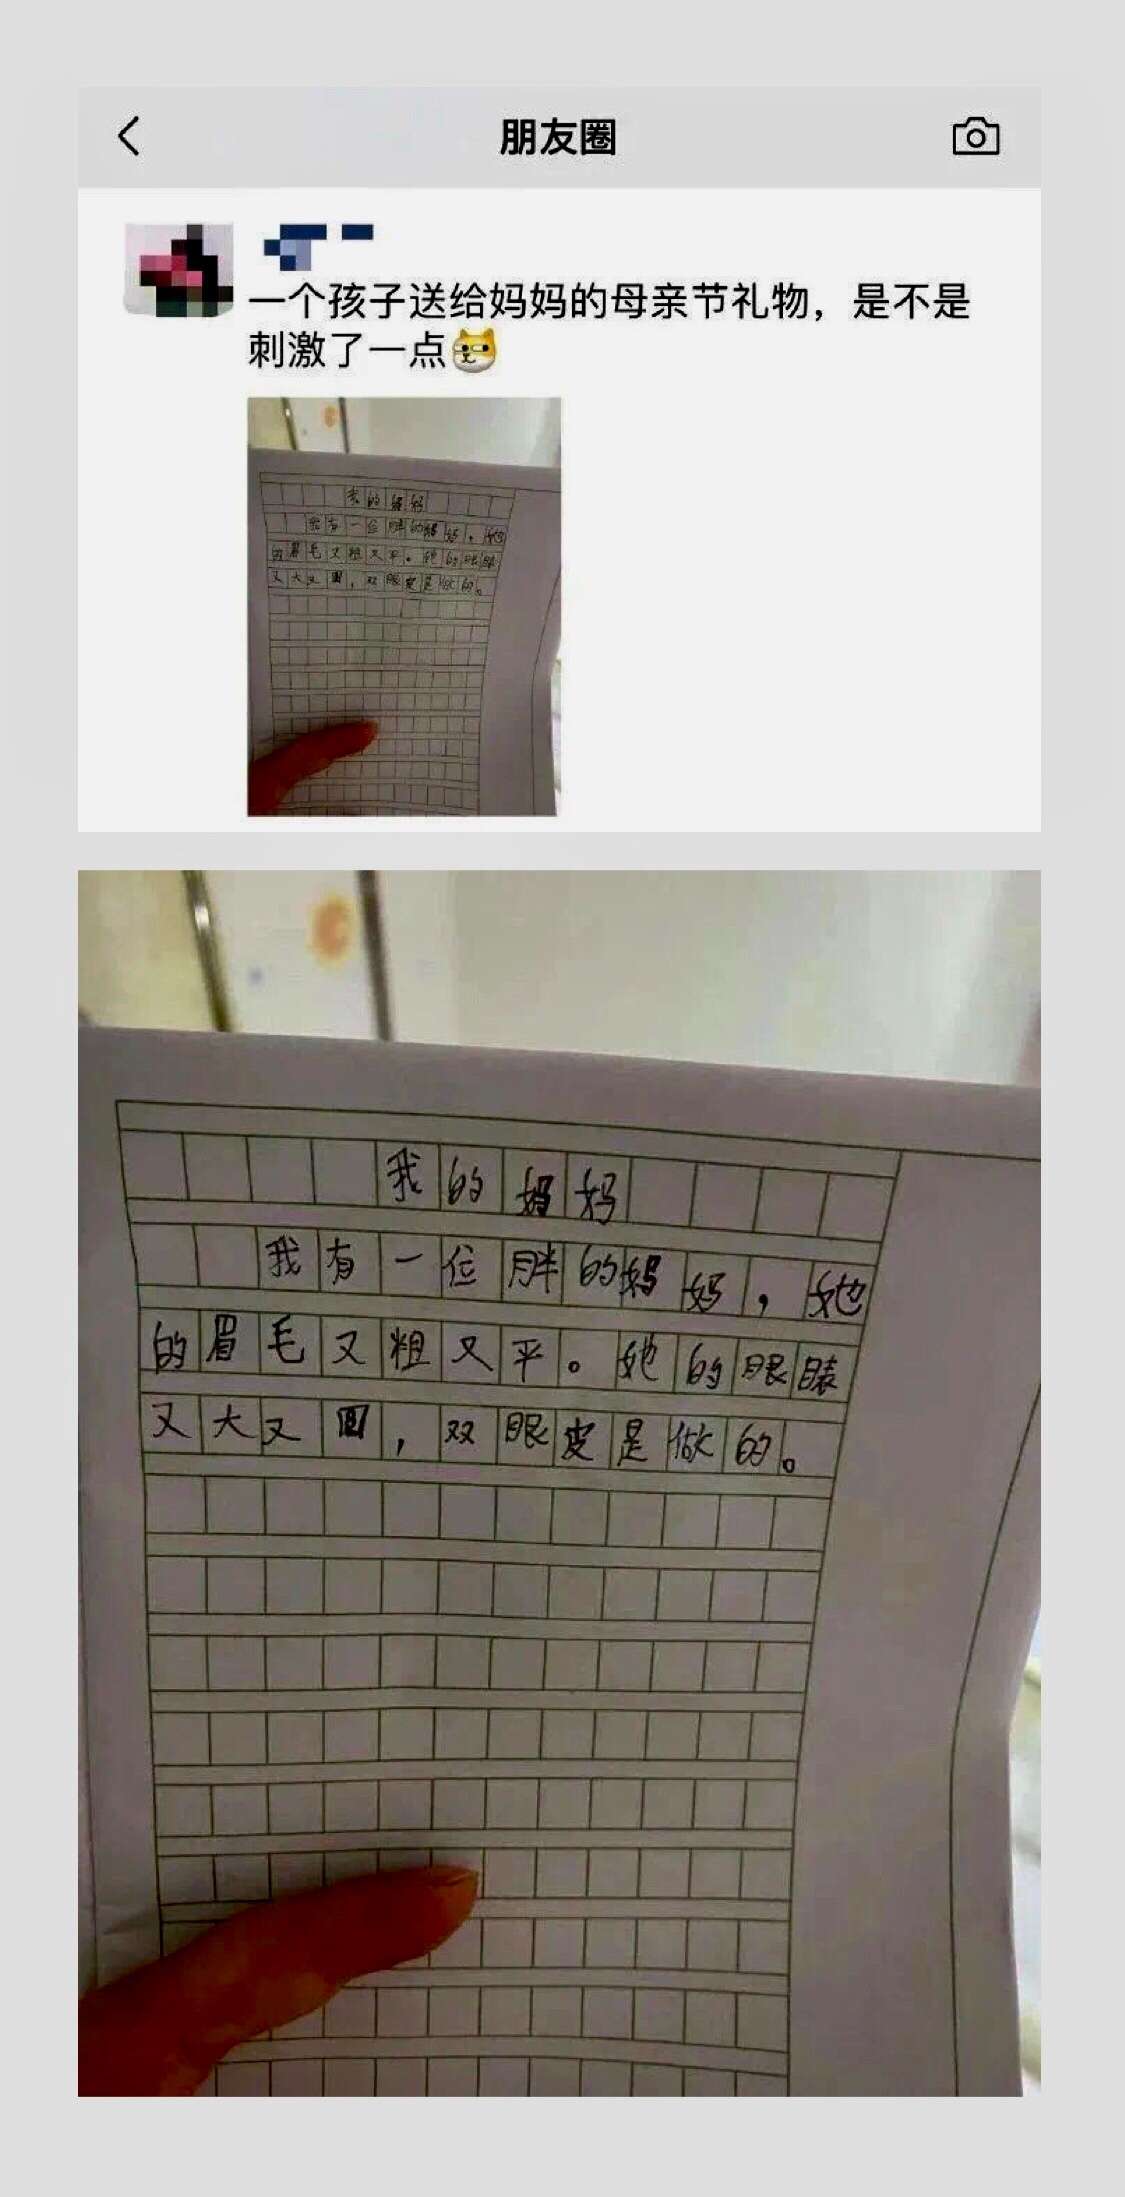 朋友圈
一个孩子送给妈妈的母亲节礼物，是不是
刺激了一点
我的妈妈
我有一位胖的妈妈，她
的眉毛又粗又平。她的眼睛
又大又圆，双眼皮是做的。
我的妈妈
我有一位胖的妈妈，她
的眉毛又粗又平。她的眼睛
又大又圆，双眼皮是做的。